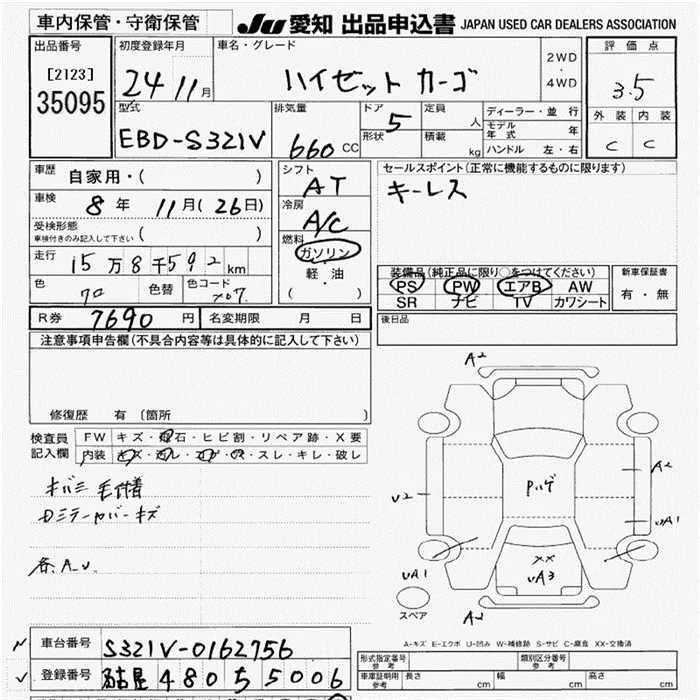 車内保管・守衛保管
JU 愛知 出品申込書 JAPAN USED CAR DEALERS ASSOCIATION
出品番号
[2123]
35095
初度登録年月
24 11月
車名・グレード
ハイゼット カーゴ
2WD
・
4WD
評価点
3.5
外装 内装
C C
型式
EBD-S321V
排気量
660 CC
ドア 5
形状
定員 人
積載 kg
ディーラー・並行
モデル年式 年
ハンドル 左・右
車歴 自家用・( )
車検 8年 11月(26日)
受検形態
車検付きのみ記入して下さい ( )
走行 15万8千592km
色 色替 色コード
シフト AT
冷房 A/C
燃料 ガソリン
軽・油
( )
セールスポイント(正常に機能するものに限ります)
キーレス
装備品(純正品に限り○をつけてください)
PS PW エアB AW
SR ナビ TV カワシート
新車保証書
有・無
R券 7690円 名変期限 月 日
後日品
注意事項申告欄(不具合内容等は具体的に記入して下さい)
修復歴 有 (箇所 )
検査員記入欄
FW キズ・飛石・ヒビ割・リペア跡・X要
内装 キズ・汚レ・コゲ・穴・スレ・キレ・破レ
キバミ 毛付着
Dミラーカバーキズ
各A.U.
A2
A2
U2
UA1
Pハゲ
XX
UA3
UA1
A2
スペア
A-キズ E-エクボ U-凹み W-補修跡 S-サビ C-腐食 XX-交換済
車台番号 S321V-0162756
登録番号 名古屋 480 ち 5006
形式指定番号 参考
類別区分番号 参考
車庫証明用 参考 長さ cm 幅 cm 高さ cm